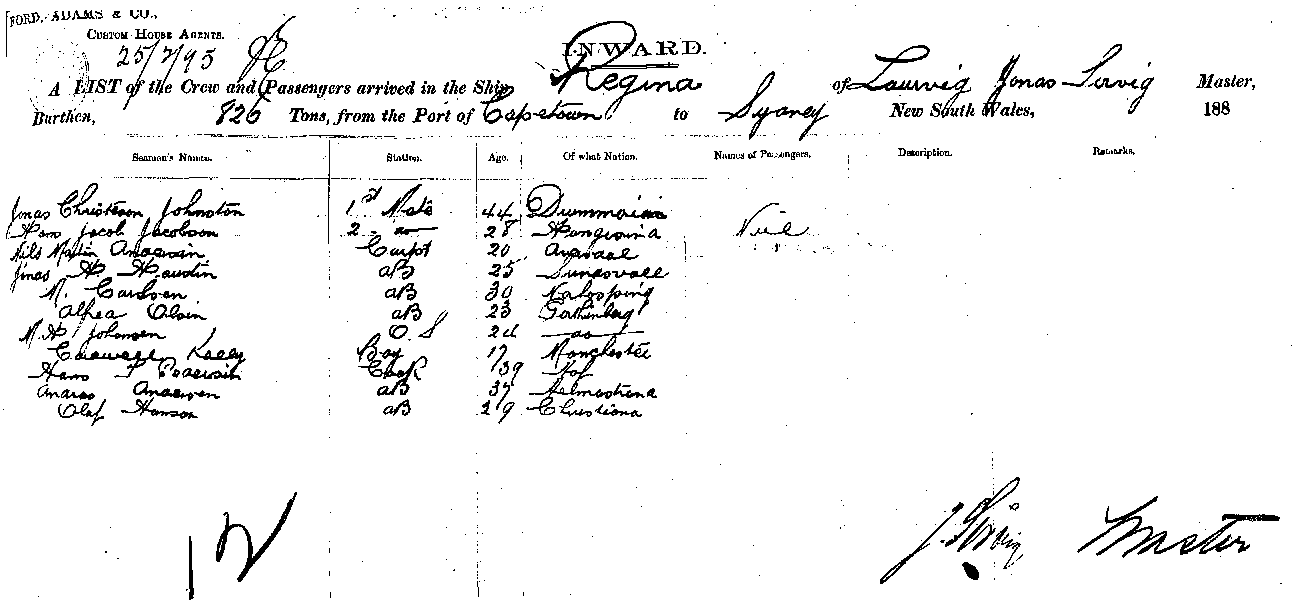 FORD, ADAMS & CO.,
CUSTOM HOUSE AGENTS.
25/7/95
INWARD.
A LIST of the Crew and Passengers arrived in the Ship Regina of Laurvig Jonas Servig Master,
Burthen, 826 Tons, from the Port of Capetown to Sydney New South Wales, 188
Seaman's Names. Station. Age. Of what Nation. Names of Passengers. Description. Remarks.
Jonas Christeson Johnston 1st Mate 44
Hans Jacob Jacobson 2 do 28 Nil
Nils Martin Andersin Carpt 20
Jonas H AB 25 Sundsvall
M. Carlsen AB 30
Alfred Olsin AB 23 Gothenberg
M. H Johansen O.S 24 do
Kelly Boy 17 Manchester
Hans Cook 39
Andras Andersen AB 37
Olaf Hanson AB 29 Christiana
12
J. Servig Master